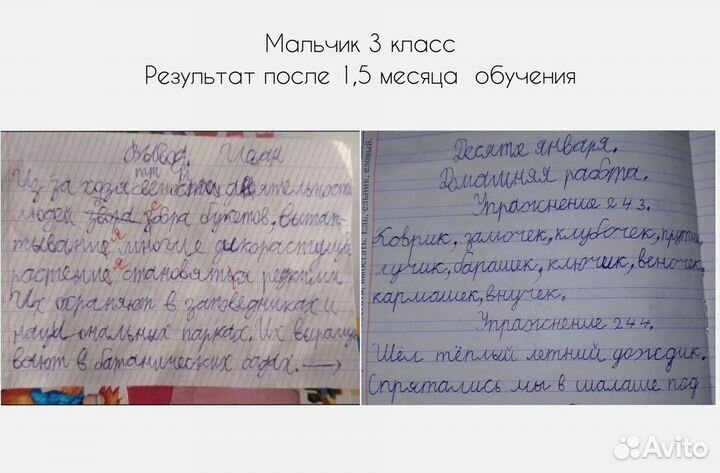 Мальчик 3 класс
Результат после 1,5 месяца обучения
Вывод. Иван
Из за хозяйственности деятельность
людей збора збора букетов, вытап-
тывание многие дикорастущие
растение становяться редкими
Их охраняют в заповедниках и
национальных парках. Их выращи
вают в батанических садах.
Десяте января.
Домашняя работа.
Упражнение 243.
Коврик, замочек, клубочек, прутик,
лучик, барашек, ключик, веночек,
кармашек, внучек.
Упражнение 244.
Шёл тёплый летний дождик.
Спрятались мы в шалаше под
ель, ельник, еловый.
Avito